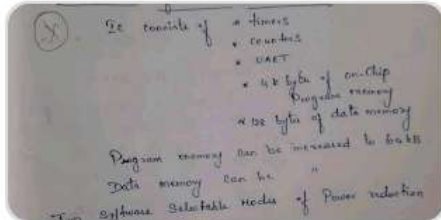 It consists of * timers
* counters
* UART
* 4k bytes of on-chip
Program memory
* 128 bytes of data memory
Program memory can be increased to 64kB
Data memory can be "
Two Software Selectable Modes of Power reduction